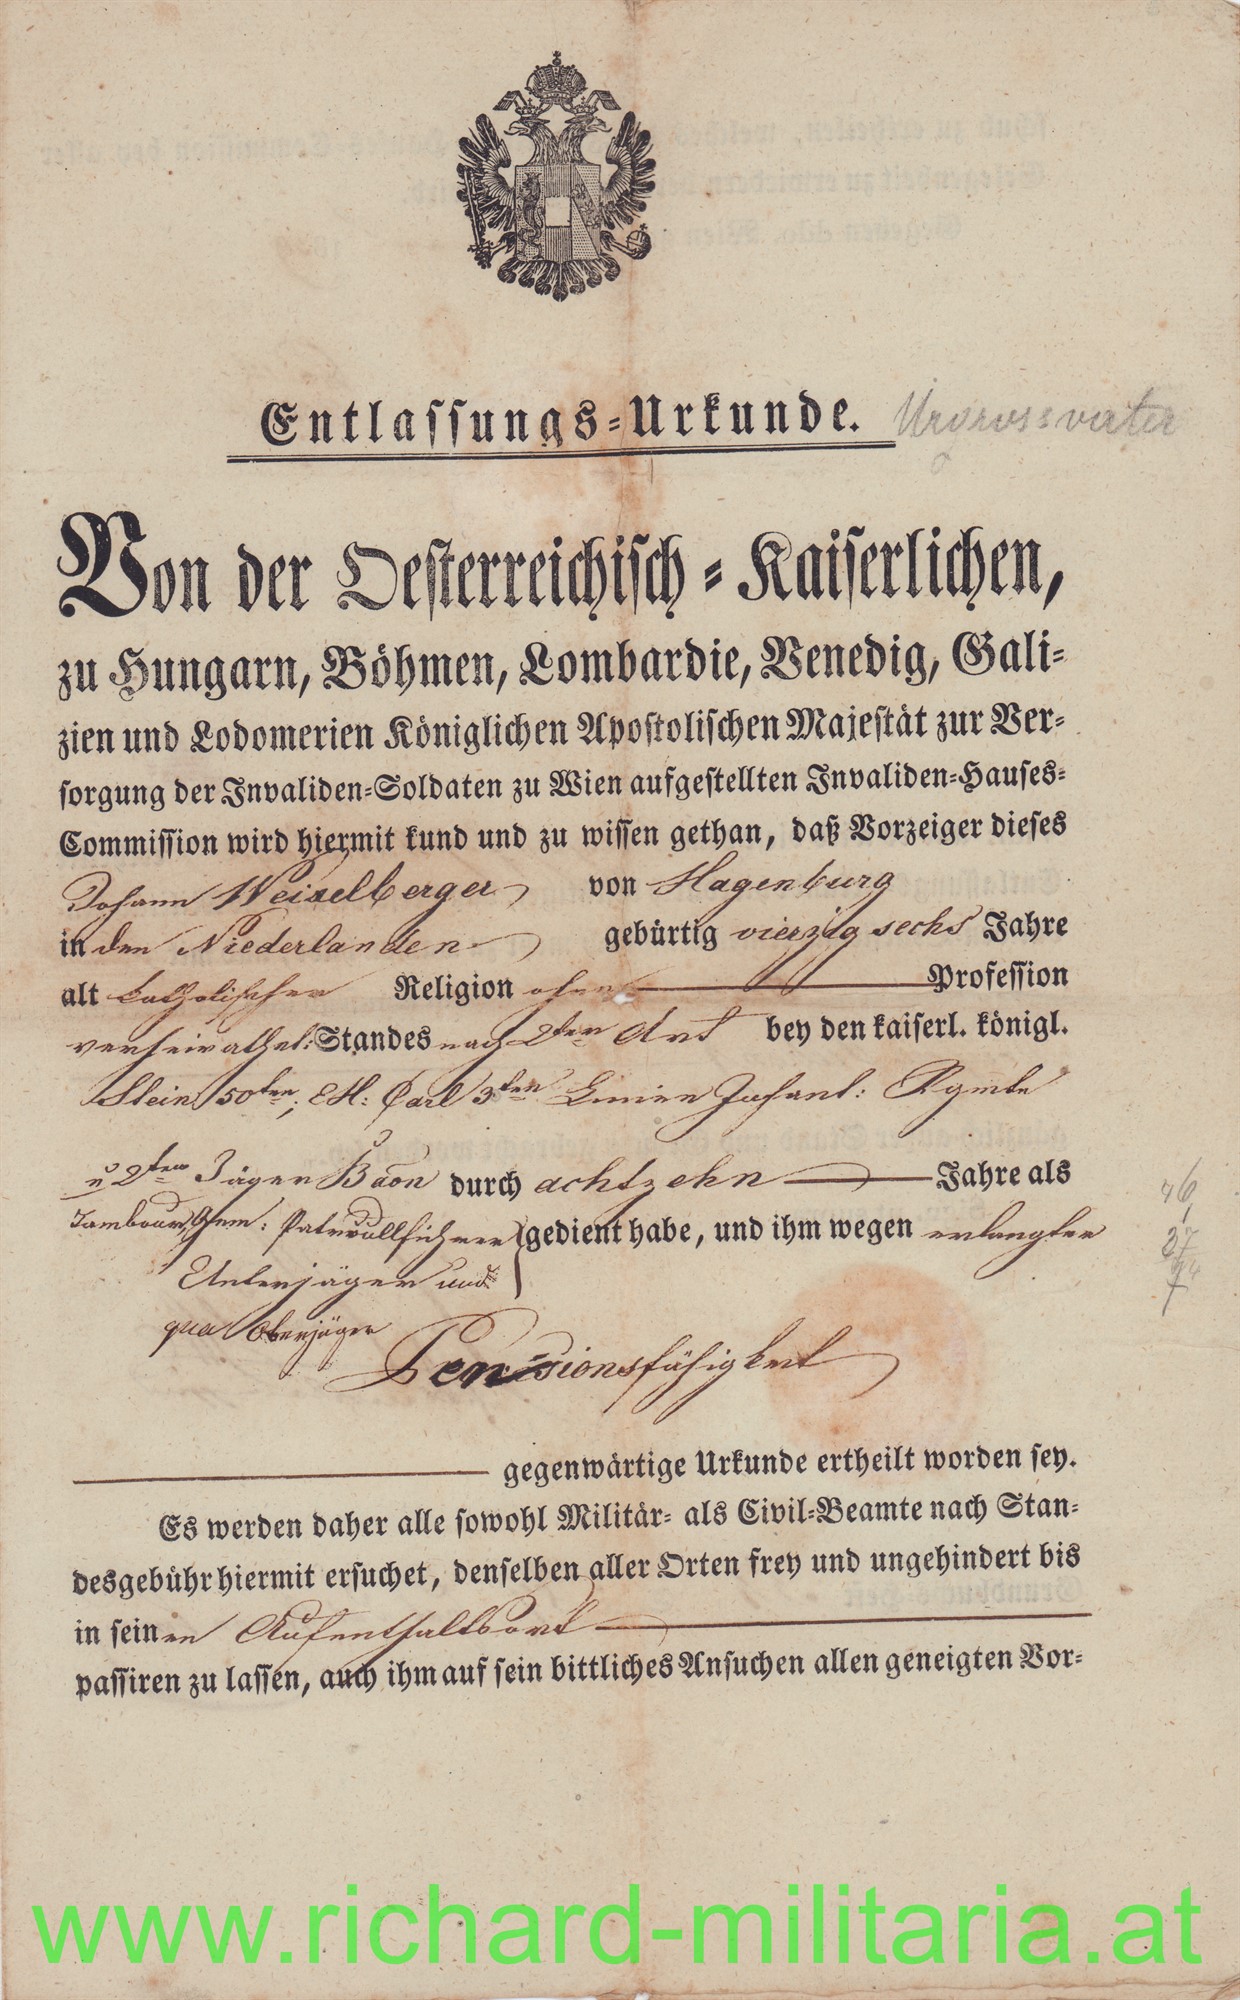 Entlassungs-Urkunde. Urgrossvater
Von der Oesterreichisch-Kaiserlichen,
zu Hungarn, Böhmen, Lombardie, Venedig, Gali-
zien und Lodomerien Königlichen Apostolischen Majestät zur Ver-
sorgung der Invaliden-Soldaten zu Wien aufgestellten Invaliden-Hauses-
Commission wird hiermit kund und zu wissen gethan, daß Vorzeiger dieses
Johann Weiselberger von Hagenburg
in den Niederlanden gebürtig vierzig sechs Jahre
alt katholischer Religion ohne Profession
verheirathet: Standes nach 2ter Art bey den kaiserl. königl.
Stein 50ten, EH: Carl 3ten Linien Infant: Rgmte
u 2ten Jäger Baon durch achtzehn Jahre als
Tambour, Gem: Patroullführer gedient habe, und ihm wegen erlangter
Unterjäger und
qua Oberjäger
Pensionsfähigkeit
gegenwärtige Urkunde ertheilt worden sey.
Es werden daher alle sowohl Militär- als Civil-Beamte nach Stan-
desgebühr hiermit ersuchet, denselben aller Orten frey und ungehindert bis
in seinen Aufenthaltsort
passiren zu lassen, auch ihm auf sein bittliches Ansuchen allen geneigten Vor-
www.richard-militaria.at